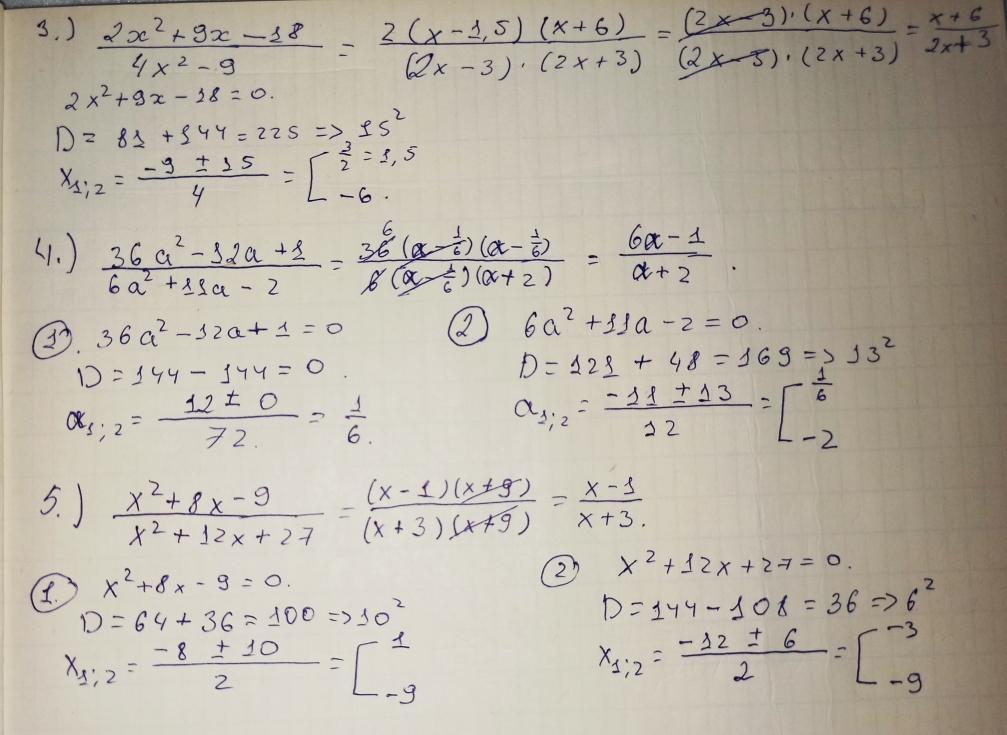 3.) (2x² + 9x − 18)/(4x² − 9) = (2(x − 1,5)(x + 6))/((2x − 3)·(2x + 3)) = ((2x − 3)·(x + 6))/((2x − 3)·(2x + 3)) = (x + 6)/(2x + 3)
2x² + 9x − 18 = 0.
D = 81 + 144 = 225 => 15²
x₁;₂ = (−9 ± 15)/4 = [ 3/2 = 1,5
−6.
4.) (36a² − 12a + 1)/(6a² + 11a − 2) = (36 6 (a − 1/6)(a − 1/6))/(6(a − 1/6)(a + 2)) = (6a − 1)/(a + 2).
1. 36a² − 12a + 1 = 0
D = 144 − 144 = 0.
a₁;₂ = (12 ± 0)/72. = 1/6.
2 6a² + 11a − 2 = 0.
D = 121 + 48 = 169 => 13²
a₁;₂ = (−11 ± 13)/12 = [ 1/6
−2
5.) (x² + 8x − 9)/(x² + 12x + 27) = ((x − 1)(x + 9))/((x + 3)(x + 9)) = (x − 1)/(x + 3).
1. x² + 8x − 9 = 0.
D = 64 + 36 = 100 => 10²
x₁;₂ = (−8 ± 10)/2 = [ 1
−9
2 x² + 12x + 27 = 0.
D = 144 − 108 = 36 => 6²
x₁;₂ = (−12 ± 6)/2 = [ −3
−9